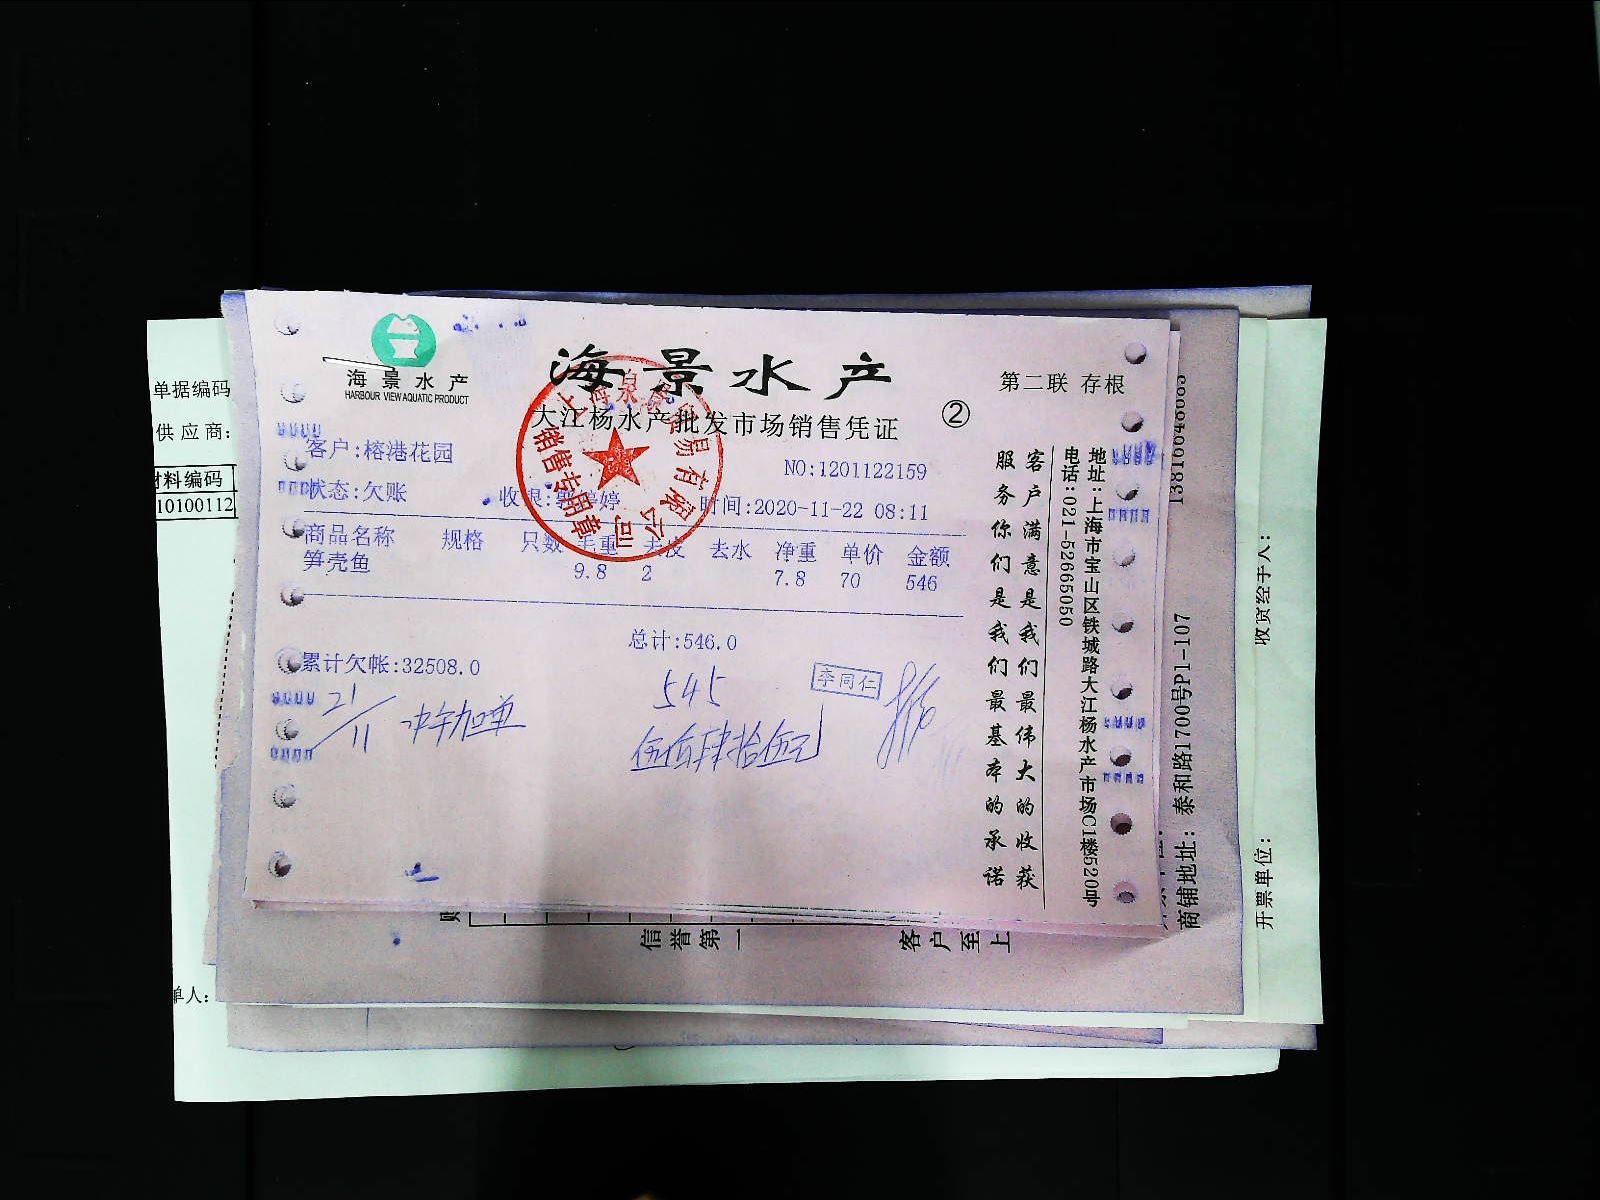 海景水产
HARBOUR VIEW AQUATIC PRODUCT
海景水产
大江杨水产批发市场销售凭证
②
第二联 存根
客户:榕港花园
NO:1201122159
状态:欠账
收银:郭婷婷
时间:2020-11-22 08:11
商品名称 规格 只数 毛重 去皮 去水 净重 单价 金额
笋壳鱼 9.8 2 7.8 70 546
总计:546.0
累计欠帐:32508.0
545
李同仁
21/11 中午加单
伍佰肆拾伍元
销售专用章
客户满意是我们最伟大的收获
服务你们是我们最基本的承诺
地址:上海市宝山区铁城路大江杨水产市场C1楼520号
电话:021-52665050
单据编码
供应商:
材料编码
10100112
单人:
信誉第一
客户至上
商铺地址: 泰和路1700号P1-107
收货经手人:
开票单位: